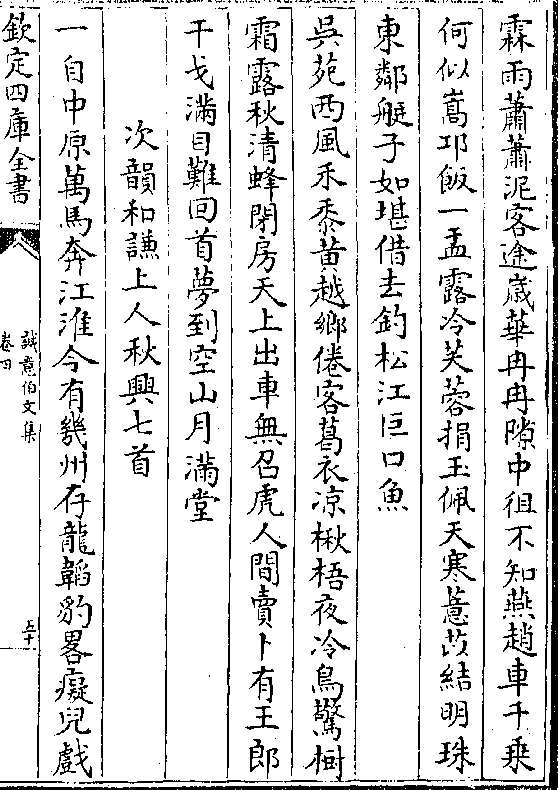 霖雨蕭蕭泥客途嵗華冉冉隙中徂不知燕趙車千乗
何似嵩邛飯一盂露冷芙蓉捐玉佩天寒薏苡結明珠
東鄰艇子如堪借去釣松江巨口魚
吳苑西風禾黍黄越鄉倦客葛衣凉楸梧夜冷鳥驚樹
霜露秋清蜂閉房天上出車無召虎人間賣卜有王郎
干戈滿目難回首夢到空山月滿堂
次韻和謙上人秋興七首
一自中原萬馬奔江淮今有幾州存龍韜豹畧癡兒戲
欽定四庫全書
誠意伯文集
卷四
五十